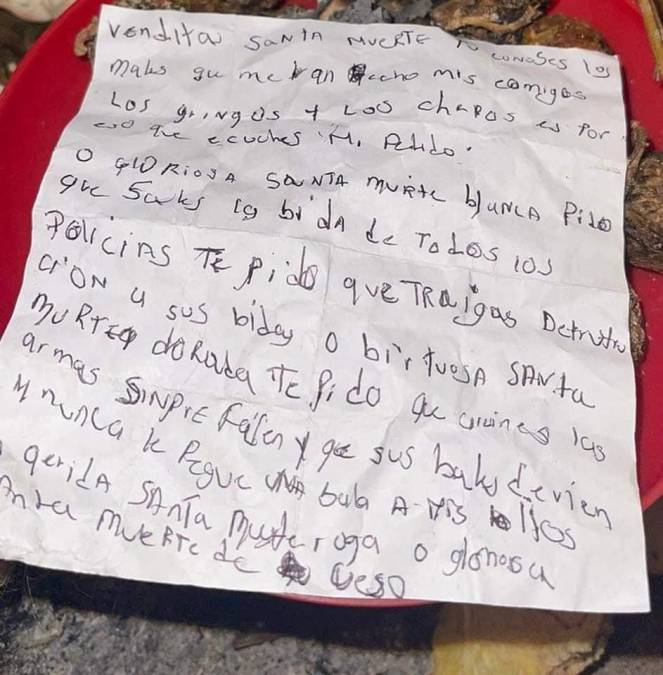 vendita SANTA MUERTE tu conoses los
males que me han echo mis emigos
Los gringos y Los chapos es por
eso que ecuches Mi Pedido.
O gloriosa santa murte blanca Pido
que Sakes la bida de Todos los
Policias Te pido que Traigas Detrutru
cion a sus bidas o birtuosa santa
murte dorada Te pido que aruines las
armas sinpre fallen y que sus balas devien
y nunca le pegue una bala a mis
qerida santa muerte roga o gloriosa
anta muerte de ueso